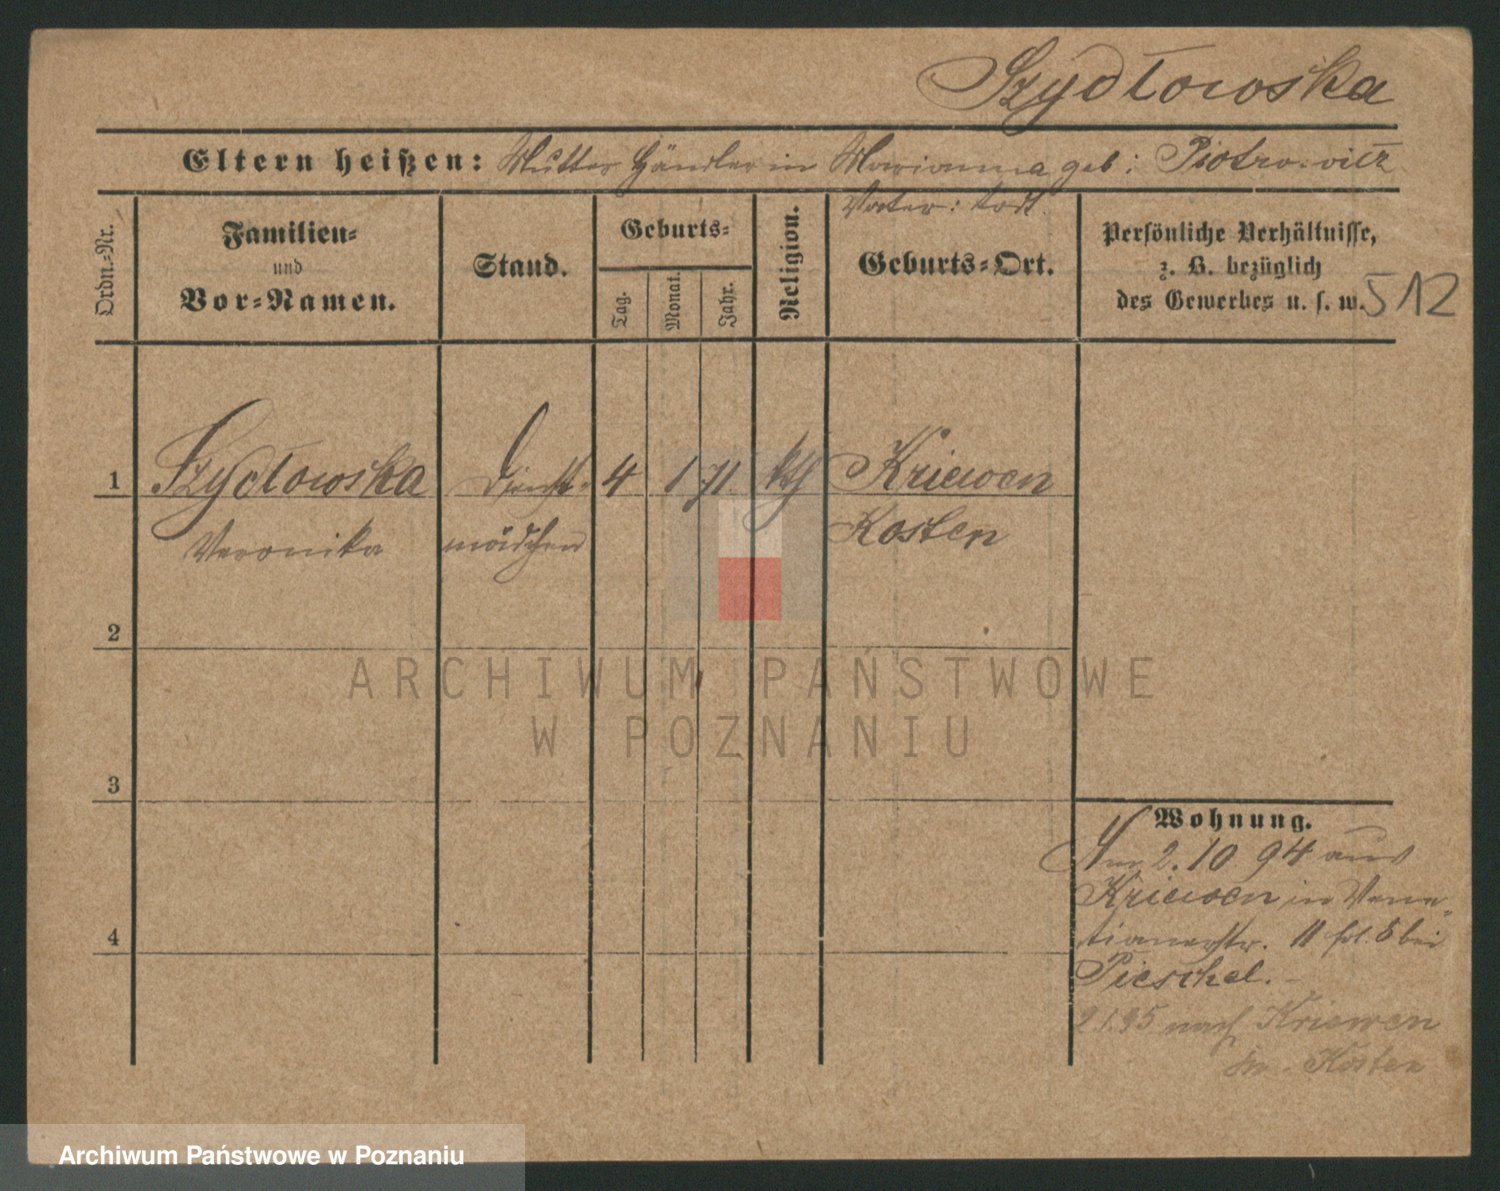 Szydłowska
Eltern heißen: Mutter Händlerin Marianna geb: Piotrowicz
Vater: todt.
Ordn.-Nr.
Familien-
und
Vor-Namen.
Stand.
Geburts-
Tag.
Monat.
Jahr.
Religion.
Geburts-Ort.
Persönliche Verhältnisse,
z. B. bezüglich
des Gewerbes u. s. w.
512
1 Szydłowska Dienst- 4 1 71. kth Kriewen
Veronika mädchen Kosten
2
3
4
Wohnung.
Am 2. 10 94 aus
Kriewen in Vene-
tianerstr. 11 bei
Pieschel. –
2.1.95 nach Kriewen
Kr. Kosten
ARCHIWUM PAŃSTWOWE
W POZNANIU
Archiwum Państwowe w Poznaniu